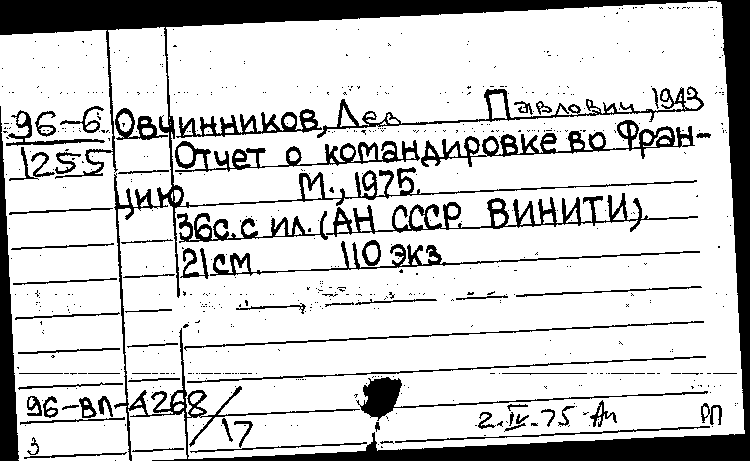 96-6 Овчинников, Лев Павлович, 1943
1255 Отчет о командировке во Фран-
цию. М., 1975.
36с. с ил. (АН СССР. ВИНИТИ).
21см. 110 экз.
96-ВП-4268/17
2.IV-75 Ан РП
3